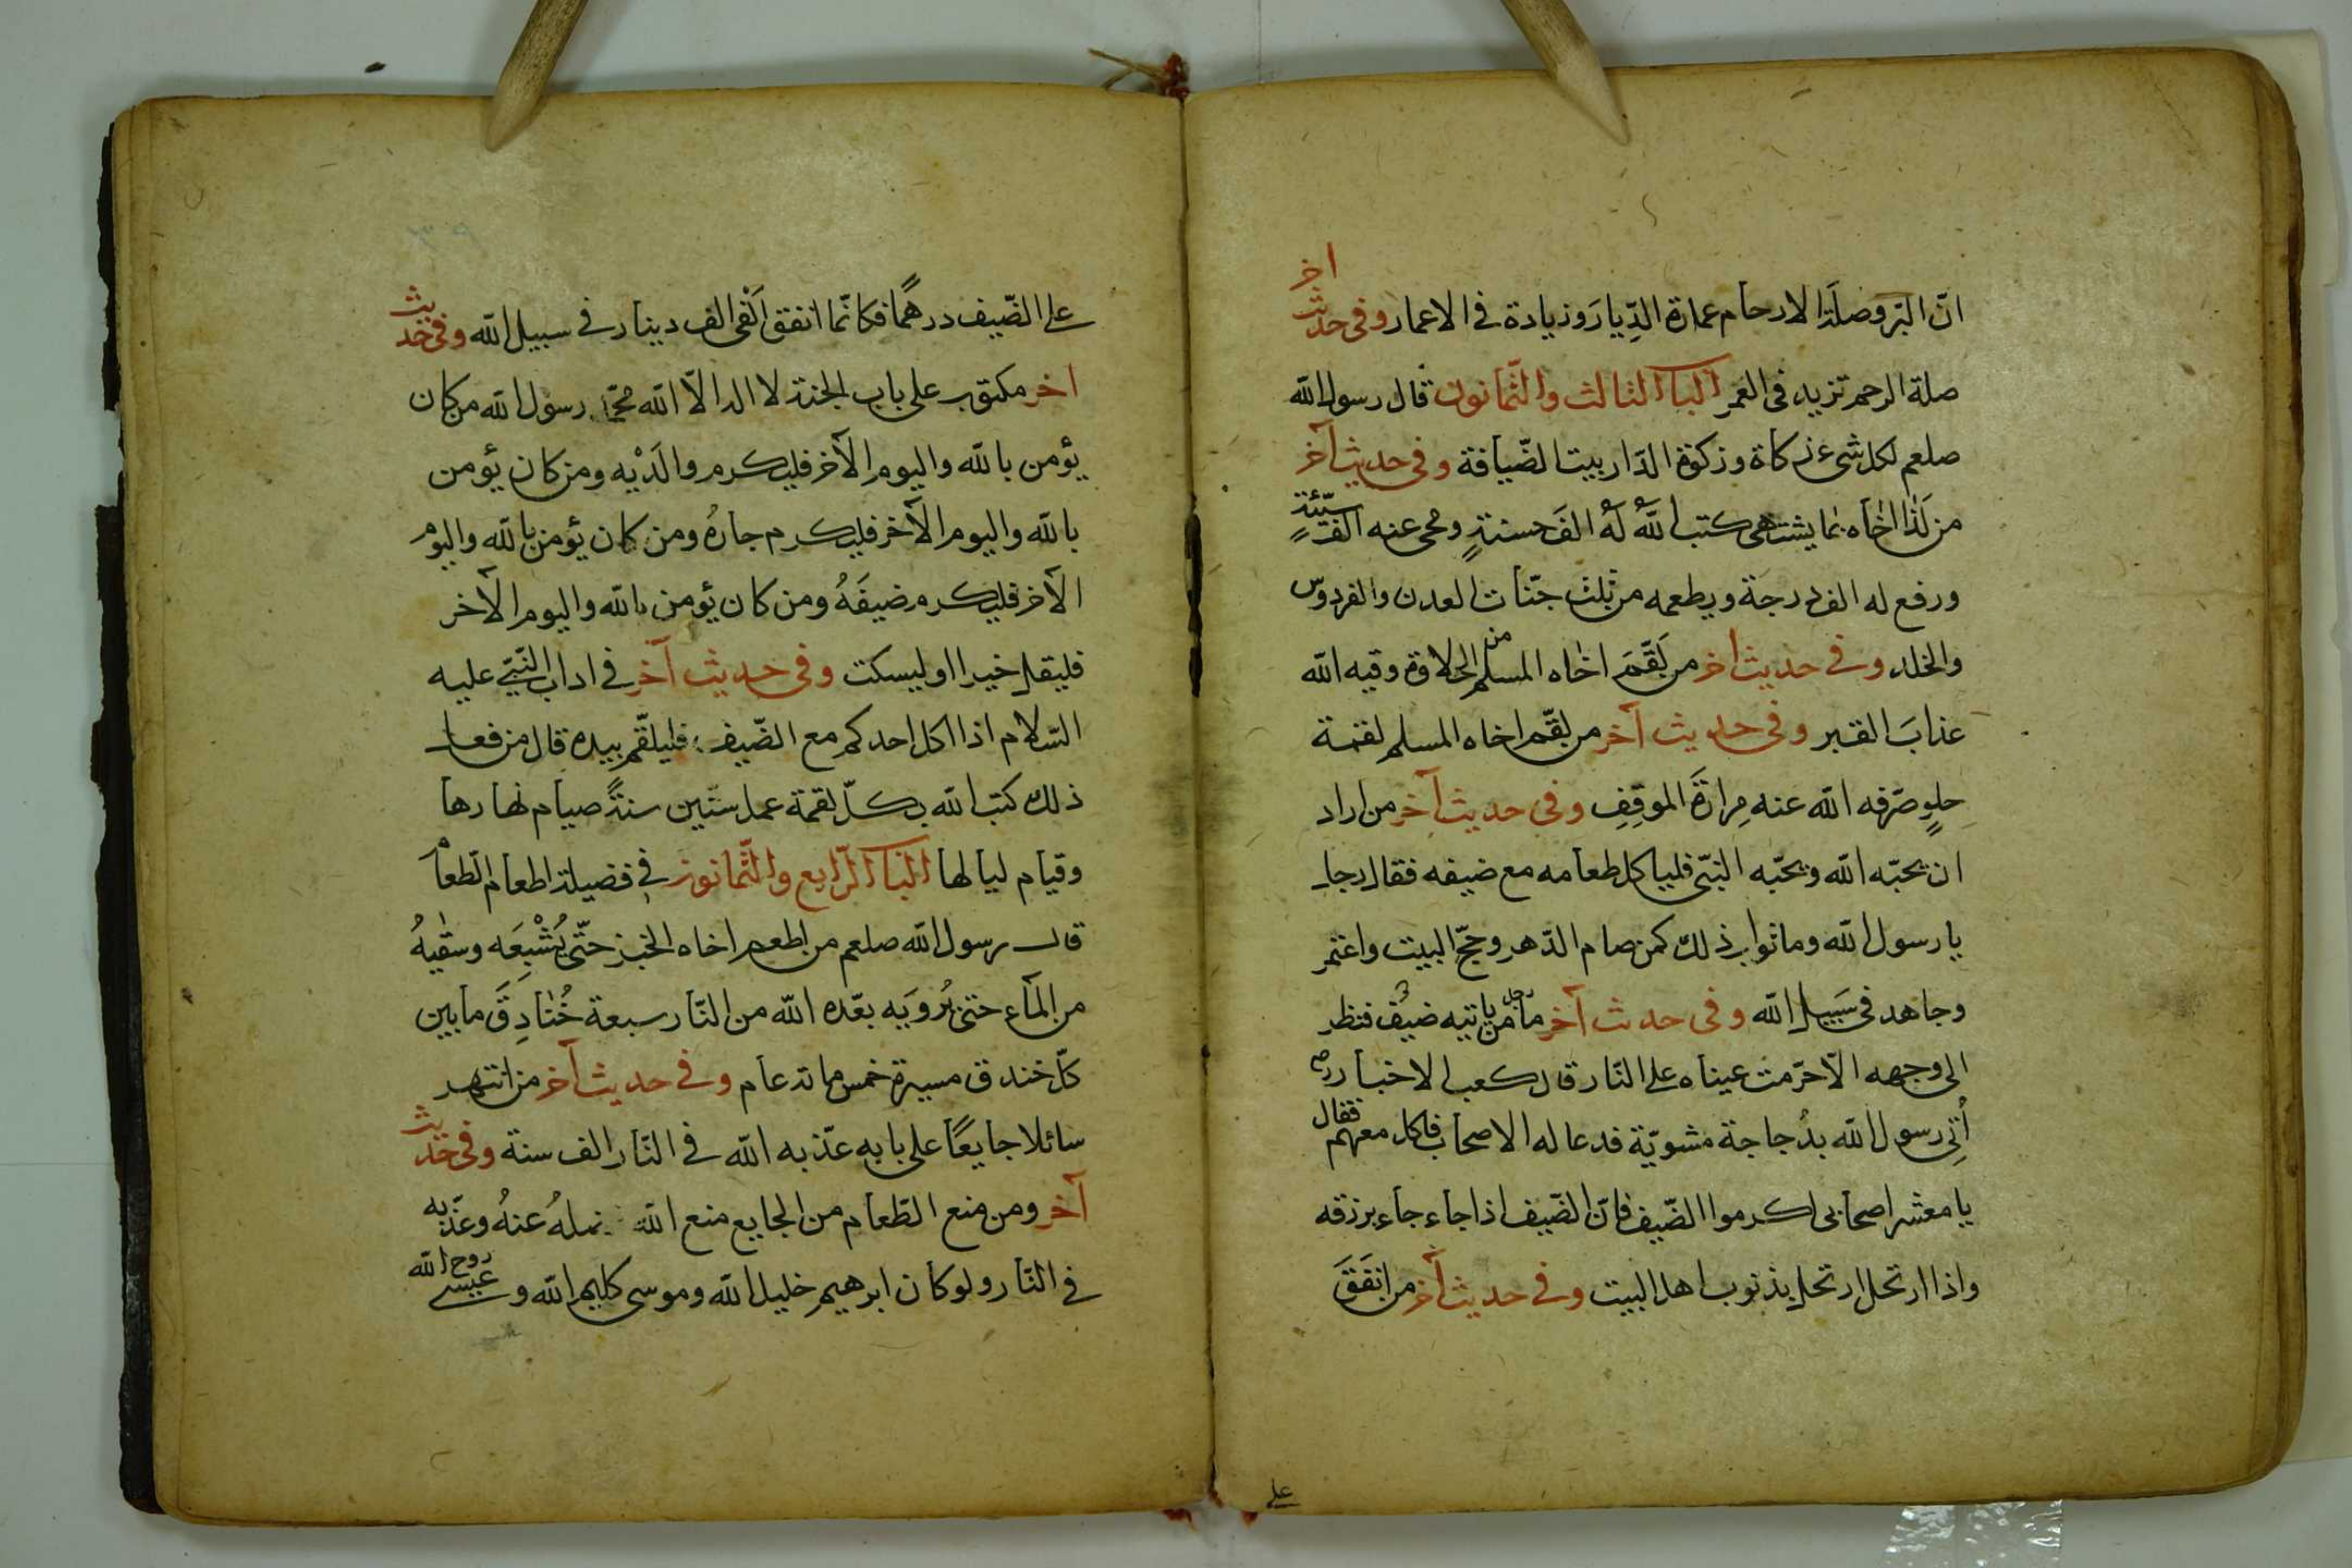 انّ البرّ وصلَة الارحام عمارة الدِّيارَ وزيادة في الاعمار وفي حديث اخر
صلة الرحم تزيد في العمر الباب الثالث والثّمانون قال رسول الله
صلعم لكل شىء زكاة وزكوة الدّار بيت الضّيافة وفي حديث آخر
من لَذّا اخاه بما يشتهى كتب اللّهُ لَهُ الفَ حسنةٍ ومحى عنه الفَ سيّئةٍ
ورفع له الف درجة ويطعمه من ثلث جنّات العدن والفردوس
والخلد وفي حديث اخر من لَقَّمَ اخاه المسلم من الحلاوة وقيه الله
عذابَ القبر وفي حديث آخر من لقّم اخاه المسلم لقمة
حلوٍ صرّفه الله عنه مِرارَةَ الموقِفِ وفي حديث آخر من اراد
ان يحبّه الله ويحبّه النبّى فلياكل طعامه مع ضيفه فقال رجل
يا رسول الله وما ثواب ذلك كمن صام الدّهر وحجّ البيت واعتمر
وجاهد في سَبيل الله وفي حدىث آخر ما من رجل ياتيه ضيف فنظر
الى وجهه الّا حرّمت عيناه على النّار قال كعب الاخبار رض
أتِى رسول الله بدُجاجة مشويّة فدعا له الاصحاب فاكل معهم فقال
يا معشر اصحابى اكرموا الضّيف فانّ الضّيف اذا جاء جاء برزقه
واذا ارتحل ارتحل بذنوب اهل البيت وفي حديث آخر من انفَقَ
على
على الضّيف درهمًا فكانّما انفق اَلْفى الف دينار في سبيل الله وفي حديث
اخر مكتوب على باب الجنة لا اله الّا الله محمّد رسول الله من كان
يؤمن بالله واليوم الآخر فليكرم والدَيْه ومن كان يؤمن
بالله واليوم الآخر فليكرم جارهُ ومن كان يؤمن بالله واليوم
الآخر فليكرم ضيفَهُ ومن كان يؤمن بالله واليوم الآخر
فليقل خيرا او ليسكت وفي حديث آخر في اداب النّبىّ عليه
السّلام اذا اكل احدكم مع الضّيف فليلقّم بيده قال من فعل
ذلك كتب الله بكلّ لقمة عمل ستّين سنةً صيام نهارها
وقيام ليالها الباب الرّابع والثّمانون في فضيلة اطعام الطعام
قال رسول الله صلعم من اطعم اخاه الخبز حتّى يُشْبِعَه وسقيهُ
من المآء حتىّ يُروِيَه بعّده الله من النّار سبعة خُنادِقَ ما بين
كلّ خندق مسيرة خمس مائة عام وفي حديث آخر من انتهر
سائلا جايعًا على بابه عذّبه الله في النّار الف سنة وفي حديث
آخر ومن منع الطّعام من الجايع منع الله عنهُ وعذّبه
في النّار ولو كان ابرهيم خليل الله وموسى كليم الله وعيسى روح الله